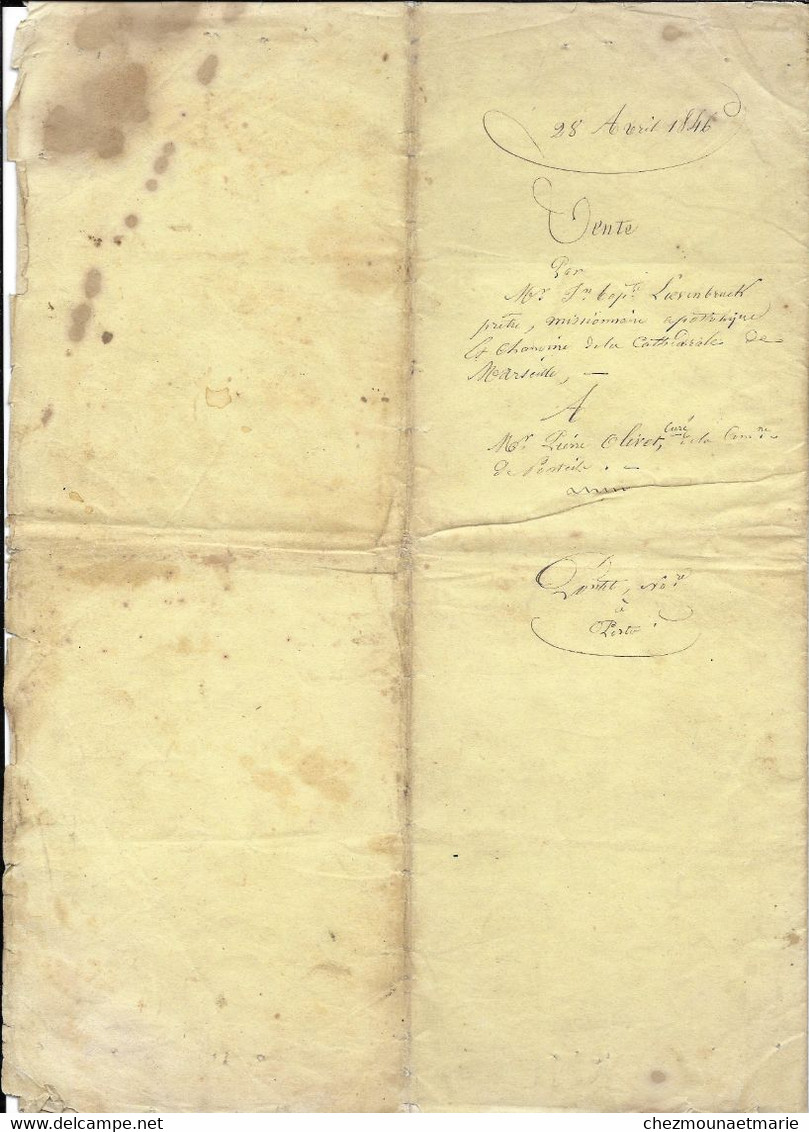 28 Avril 1846
Vente
Par
Mr. Jn. Bapt. Lœvenbruck
prêtre, missionnaire apostolique
Et Chanoine de la Cathédrale de
Marseille, —
A
Mr. Pierre Olivet, Curé de la Comne
de
Nore
à
chezmounaetmarie